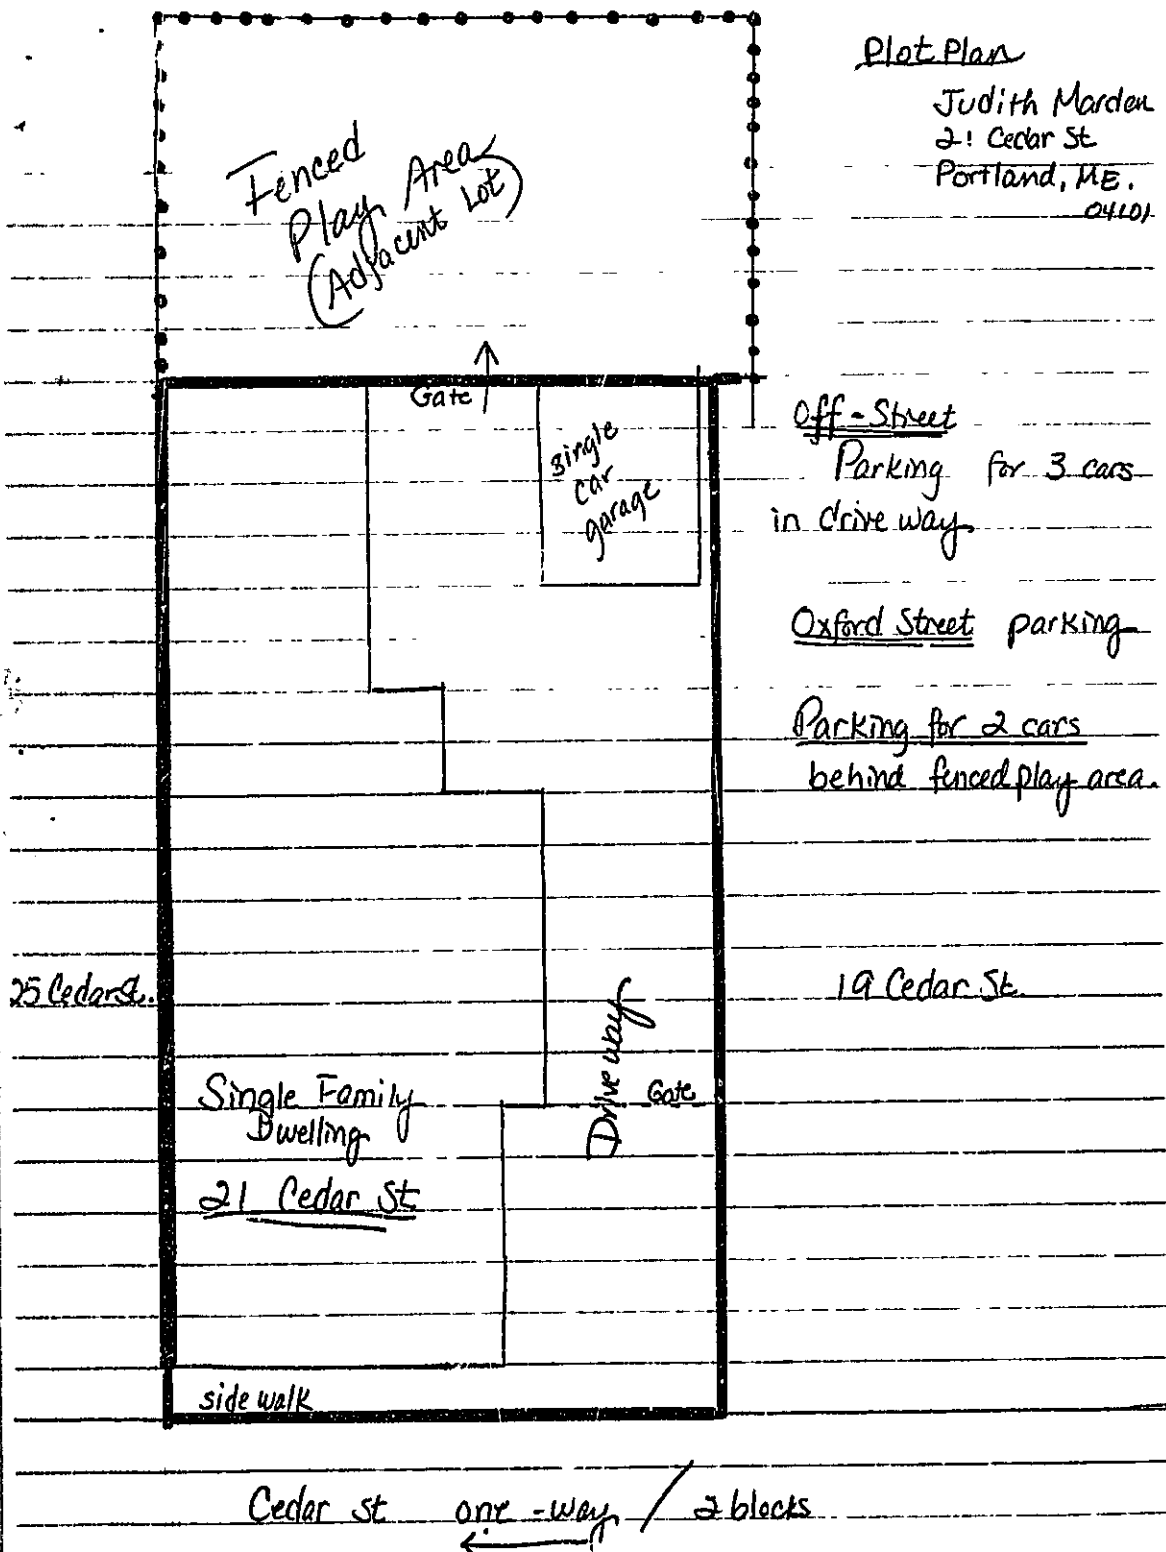 Plot Plan
Judith Marden
21 Cedar St
Portland, ME.
04101
Fenced
Play Area
(Adjacent Lot)
Gate
single
car
garage
Off-Street
Parking for 3 cars
in driveway
Oxford Street parking
Parking for 2 cars
behind fenced play area.
25 Cedar St.
19 Cedar St.
Driveway
Gate
Single Family
Dwelling
21 Cedar St
sidewalk
Cedar St one-way / 2 blocks